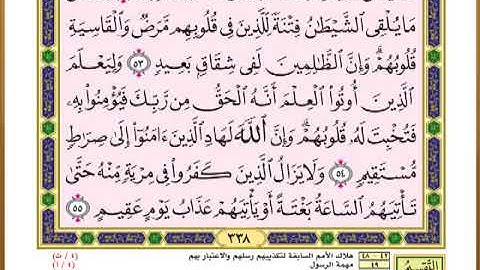 مَا يُلْقِى ٱلشَّيْطَٰنُ فِتْنَةً لِّلَّذِينَ فِى قُلُوبِهِم مَّرَضٌ وَٱلْقَاسِيَةِ
قُلُوبُهُمْ ۗ وَإِنَّ ٱلظَّٰلِمِينَ لَفِى شِقَاقٍۭ بَعِيدٍ ٥٣ وَلِيَعْلَمَ
ٱلَّذِينَ أُوتُوا۟ ٱلْعِلْمَ أَنَّهُ ٱلْحَقُّ مِن رَّبِّكَ فَيُؤْمِنُوا۟ بِهِۦ
فَتُخْبِتَ لَهُۥ قُلُوبُهُمْ ۗ وَإِنَّ ٱللَّهَ لَهَادِ ٱلَّذِينَ ءَامَنُوٓا۟ إِلَىٰ صِرَٰطٍ
مُّسْتَقِيمٍ ٥٤ وَلَا يَزَالُ ٱلَّذِينَ كَفَرُوا۟ فِى مِرْيَةٍ مِّنْهُ حَتَّىٰ
تَأْتِيَهُمُ ٱلسَّاعَةُ بَغْتَةً أَوْ يَأْتِيَهُمْ عَذَابُ يَوْمٍ عَقِيمٍ ٥٥
٣٣٨
٤٢ - ٤٨ هلاك الأمم السابقة لتكذيبهم رسلهم والاعتبار بهم (٤ / ث)
التقسيم ٤٩ مهمة الرسول (٤ / ١)